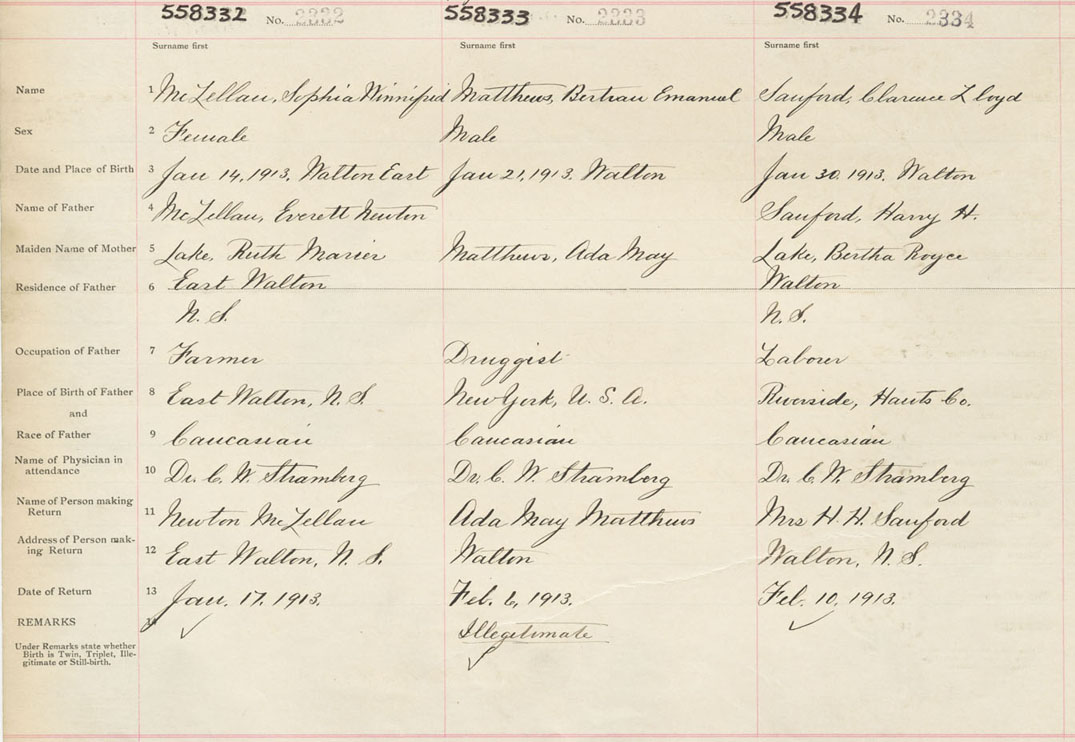 558332 No. 2332 558333 No. 2333 558334 No. 2334
Surname first Surname first Surname first
Name 1 McLellan, Sophia Winnifred Matthews, Bertran Emanuel Sanford, Clarence Lloyd
Sex 2 Female Male Male
Date and Place of Birth 3 Jan 14, 1913. Walton East Jan 21, 1913. Walton Jan 30. 1913. Walton
Name of Father 4 McLellan, Everett Newton Sanford, Harry H.
Maiden Name of Mother 5 Lake, Ruth Matthews, Ada May Lake, Bertha Royce
Residence of Father 6 East Walton Walton
N. S. N. S.
Occupation of Father 7 Farmer Druggist Laborer
Place of Birth of Father 8 East Walton, N. S. New York, U. S. A. Riverside, Hants Co.
and
Race of Father 9 Caucasian Caucasian Caucasian
Name of Physician in
attendance 10 Dr. C. W. Stramberg Dr. C. W. Stramberg Dr. C. W. Stramberg
Name of Person making
Return 11 Newton McLellan Ada May Matthews Mrs H. H. Sanford
Address of Person mak-
ing Return 12 East Walton, N. S. Walton Walton, N. S.
Date of Return 13 Jan. 17. 1913. Feb. 6, 1913. Feb. 10, 1913.
REMARKS 14 Illegitimate
Under Remarks state whether
Birth is Twin, Triplet, Ille-
gitimate or Still-birth.